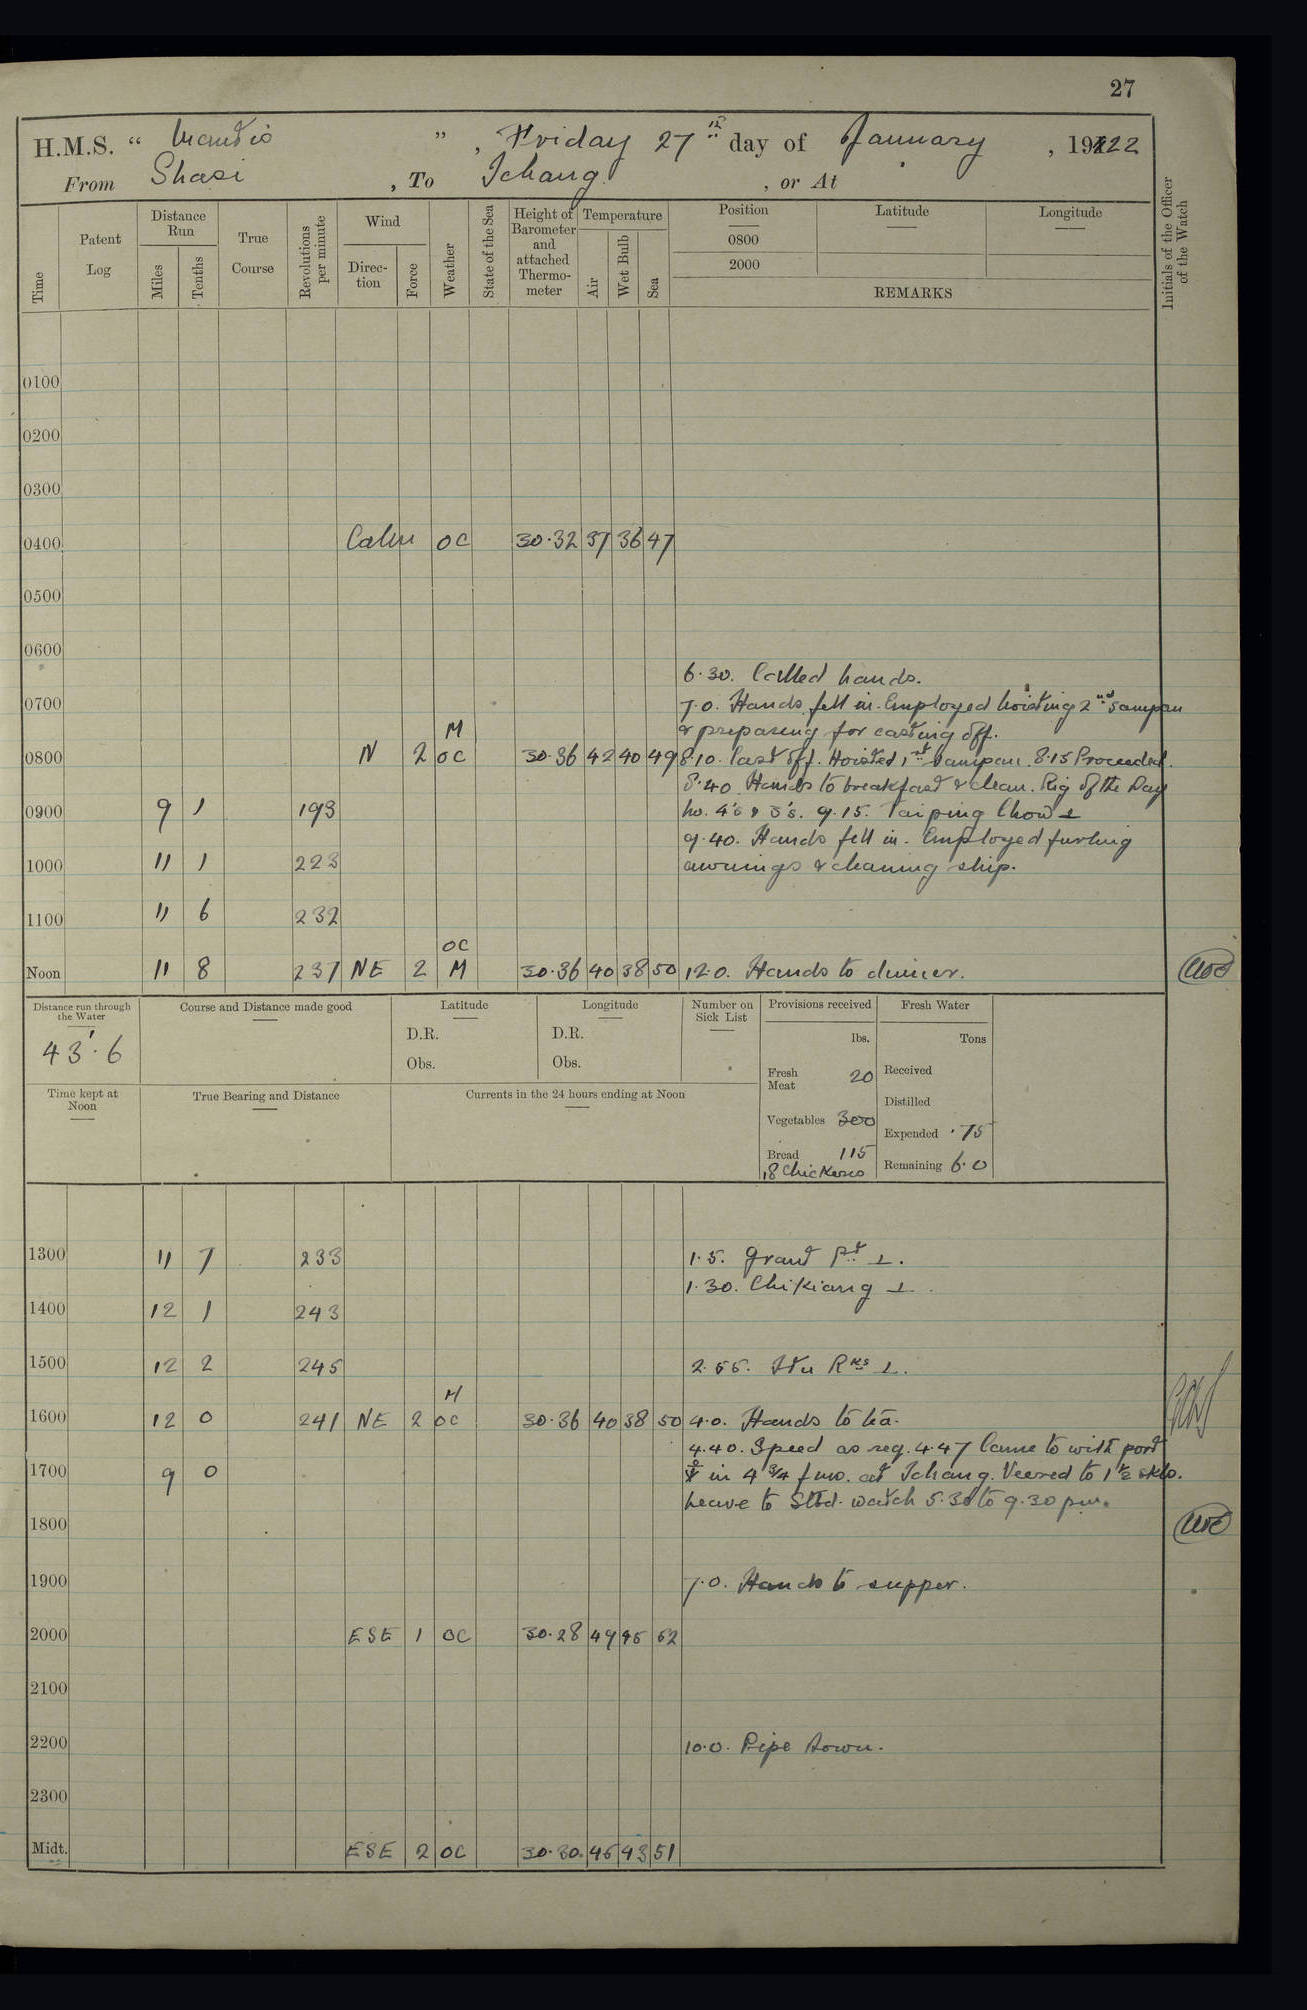 27
H.M.S. “ Mantis ” , Friday 27th day of January , 1922
From Shasi , To Ichang , or At
Time Patent Log Distance Run Miles Tenths True Course Revolutions per minute Wind Direc- tion Force Weather State of the Sea Height of Barometer and attached Thermo- meter Temperature Air Wet Bulb Sea Position 0800 2000 Latitude Longitude REMARKS Initials of the Officer of the Watch
0100
0200
0300
0400 Calm OC 30.32 37 36 47
0500
0600
6.30. Called hands.
0700 7.0. Hands fell in. Employed hoisting 2nd sampan
M & preparing for casting off.
0800 N 2 OC 30.36 42 40 49 8.10. Cast off. Hoisted 1st sampan. 8.15 Proceeded.
8.40 Hands to breakfast & clean. Rig of the Day
0900 9 1 193 No. 4's & 5's. 9.15. Taiping Chow ⊥
9.40. Hands fell in. Employed furling
1000 11 1 223 awnings & cleaning ship.
1100 11 6 232
OC
Noon 11 8 237 NE 2 M 30.36 40 38 50 12.0. Hands to dinner.
Distance run through the Water Course and Distance made good Latitude Longitude Number on Sick List Provisions received Fresh Water
43'.6 D.R. D.R. lbs. Tons
Obs. Obs.
Fresh Meat 20 Received
Time kept at Noon True Bearing and Distance Currents in the 24 hours ending at Noon
Distilled
Vegetables 300 Expended .75
Bread 115 Remaining 6.0
18 Chickens
1300 11 7 233 1.5. Grant Pt ⊥.
1.30. Chikiang ⊥.
1400 12 1 243
1500 12 2 245 2.55. Itu Rks ⊥.
M
1600 12 0 241 NE 2 OC 30.36 40 38 50 4.0. Hands to tea.
4.40. Speed as req. 4.47 Came to with port
1700 9 0 in 4 3/4 fms. at Ichang. Veered to 1 1/2 shks.
Leave to Stbd. watch 5.30 to 9.30 pm.
1800
1900 7.0. Hands to supper.
2000 ESE 1 OC 30.28 49 45 52
2100
2200 10.0. Pipe down.
2300
Midt. ESE 2 OC 30.30 45 43 51